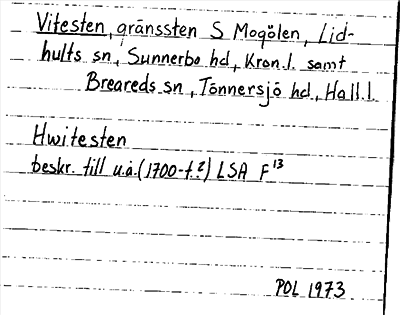 Vitesten, gränssten S Mogölen, Lid-
hults sn, Sunnerbo hd, Kron.l. samt
Breareds sn, Tönnersjö hd, Hall.l.
Hwitesten
beskr. till u.å. (1700-t.?) LSA F 13
POL 1973